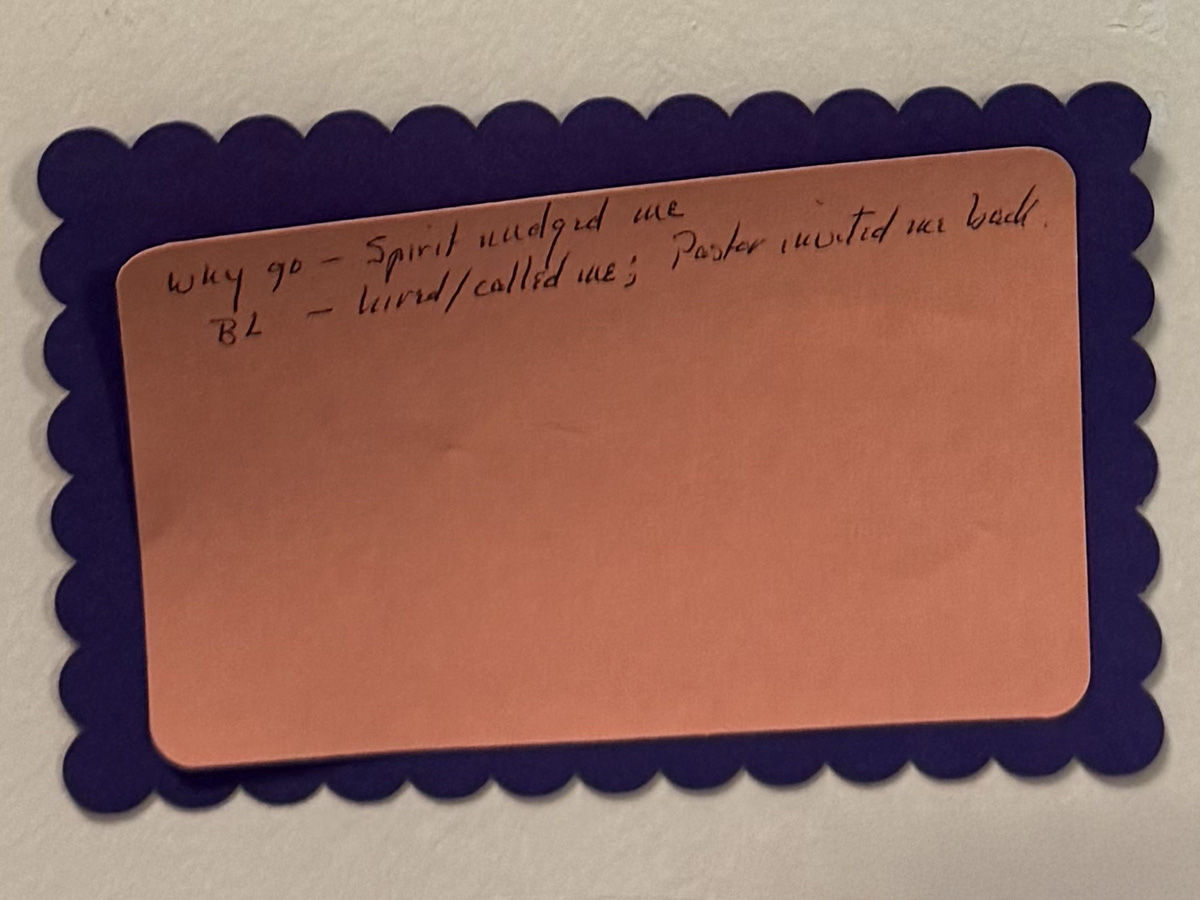 Why go – Spirit nudged me
BL – hired/called me; Pastor invited me back.